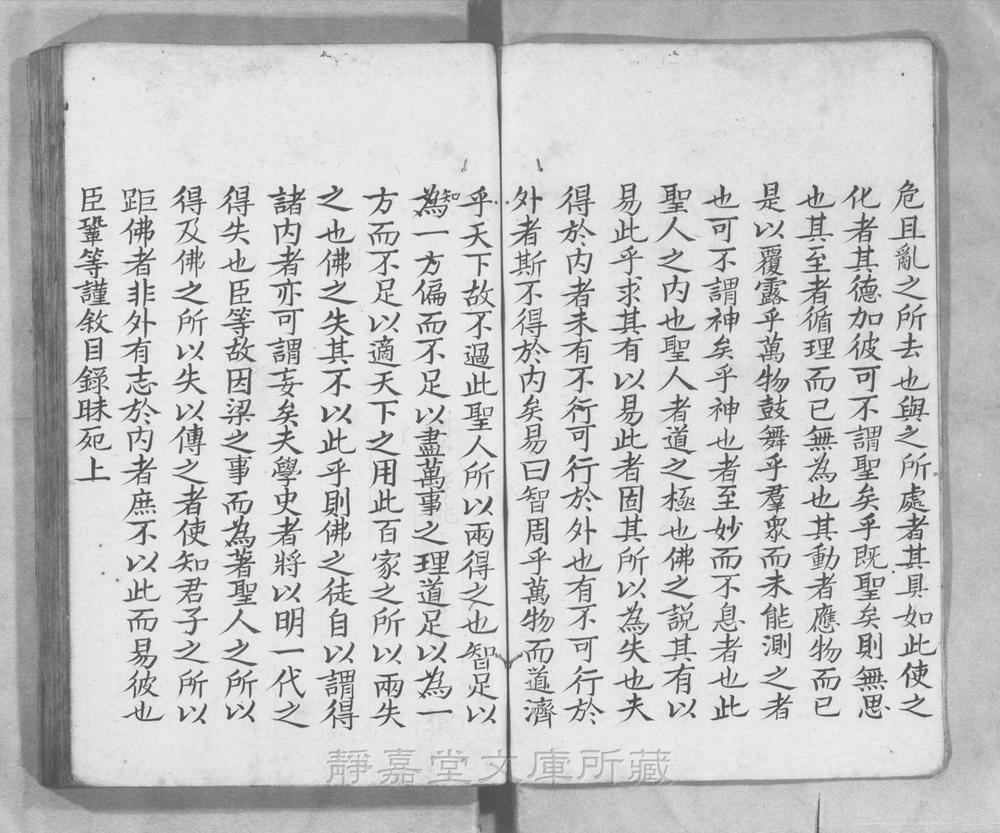 危且亂之所去也與之所處者其具如此使之
化者其德加彼可不謂聖矣乎既聖矣則無思
也其至者循理而已無為也其動者應物而已
是以覆露乎萬物鼓舞乎羣衆而未能測之者
也可不謂神矣乎神也者至妙而不息者也此
聖人之内也聖人者道之極也佛之説其有以
易此乎求其有以易此者固其所以為失也夫
得於内者未有不行可行於外也有不可行於
外者斯不得於内矣易曰智周乎萬物而道濟
乎天下故不過此聖人所以兩得之也智足以
知
為一方偏而不足以盡萬事之理道足以為一
方而不足以適天下之用此百家之所以兩失
之也佛之失其不以此乎則佛之徒自以謂得
諸内者亦可謂妄矣夫學史者將以明一代之
得失也臣等故因梁之事而為著聖人之所以
得及佛之所以失以傳之者使知君子之所以
距佛者非外有志於内者庶不以此而易彼也
臣鞏等謹敘目錄昧死上
靜嘉堂文庫所藏